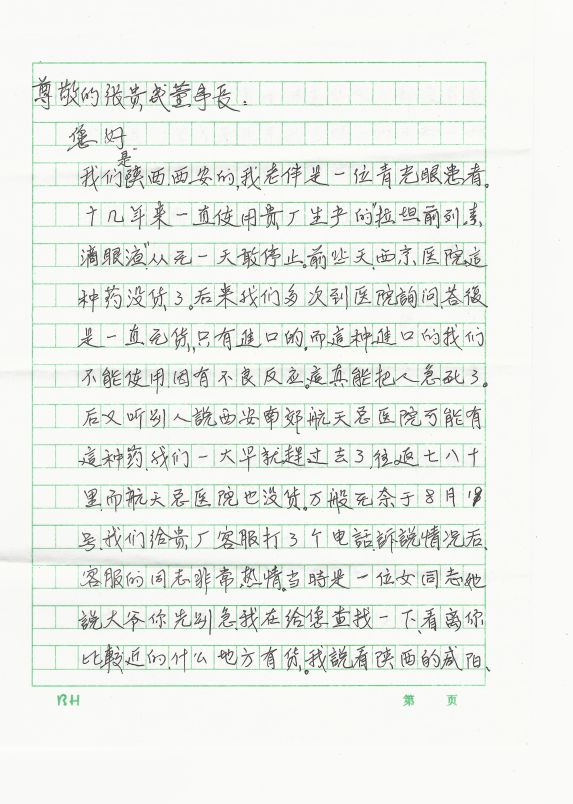 尊敬的张贵民董事长:
您好.
是
我们陕西西安的,我老伴是一位青光眼患者。
十几年来一直使用贵厂生产的"拉坦前列素
滴眼液"从无一天敢停止。前些天,西京医院這
种药没货了。后来我们多次到医院詢问,答復
是一直无货,只有進口的。而這种進口的我们
不能使用,因有不良反应。這真能把人急死了。
后又听别人説西安南郊航天总医院可能有
這种药,我们一大早就趕过去了,往返七八十
里,而航天总医院也没货。万般无奈于8月18
号,我们给贵厂客服打了个电話,訴説情况后、
客服的同志非常热情。当時是一位女同志,她
説大爷你先别急,我在给您查找一下,看离你
比較近的,什么地方有货。我説看陕西的咸阳、
BH
第 页